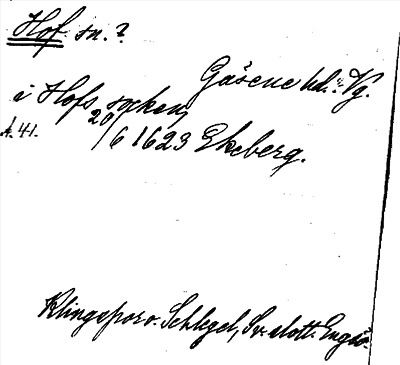 Hof sn.?
Gäsene hd. Vg.
i Hofs socken
s. 41. 20/6 1623 Ekeberg.
Klingspor o. Schlegel, Sv. slott. Engsö.